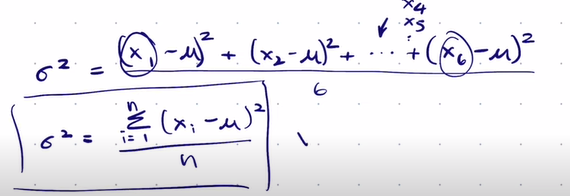 x₄
x₅
⋮
σ² = (x₁ - μ)² + (x₂ - μ)² + ⋯ + (x₆ - μ)² / 6
σ² = n Σ i=1 (xᵢ - μ)² / n